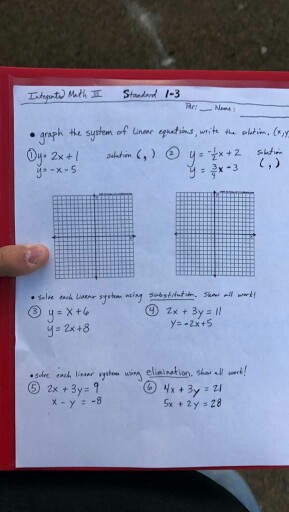 Integrated Math III Standard 1-3
Per: __ Name:
• graph the system of linear equations, write the solution. (x,y
① y = 2x + 1 solution ( , ) ② y = -1/2x + 2 solution
y = -x - 5 y = 3/4x - 3 ( , )
• solve each linear system using substitution. Show all work!
③ y = x + 6 ④ 2x + 3y = 11
y = 2x + 8 y = -2x + 5
• solve each linear system using elimination. Show all work!
⑤ 2x + 3y = 9 ⑥ 4x + 3y = 21
x - y = -8 5x + 2y = 28